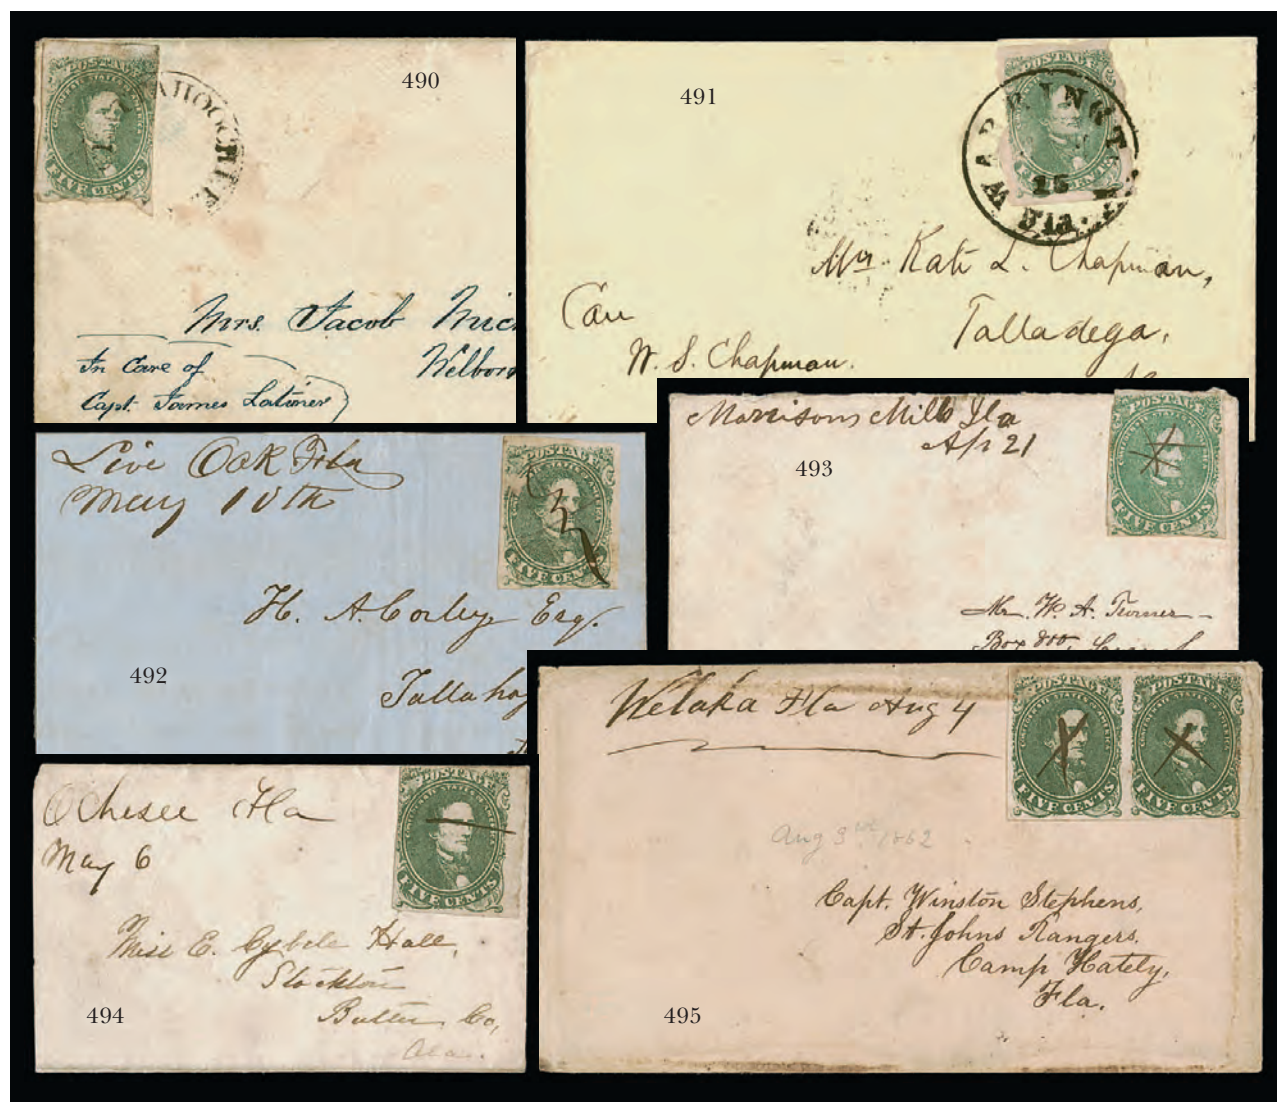 490
AHOOCHEE
POSTAGE
FIVE CENTS
Mrs. Jacob Mic
Welborn
In Care of
Capt. James Latimer
491
WARRINGT
16
Fla.
POSTAGE
FIVE CENTS
Mrs Kate L. Chapman,
Talladega,
Care
W. S. Chapman.
Live Oak Fla
May 10th
POSTAGE
FIVE CENTS
H. A. Corley Esq.
Tallaha
492
Morrisons Mills Fla
Apr 21
493
POSTAGE
FIVE CENTS
Mr. W. A. Turner
Box 800,
Ochesee Fla
May 6
POSTAGE
FIVE CENTS
Miss E. Cybele Hall,
Stockton
Co,
Ala.
494
Welaka Fla Aug 4
POSTAGE
POSTAGE
FIVE CENTS
FIVE CENTS
Aug 3rd 1862
Capt. Winston Stephens,
St. Johns Rangers,
Camp Hately,
Fla.
495